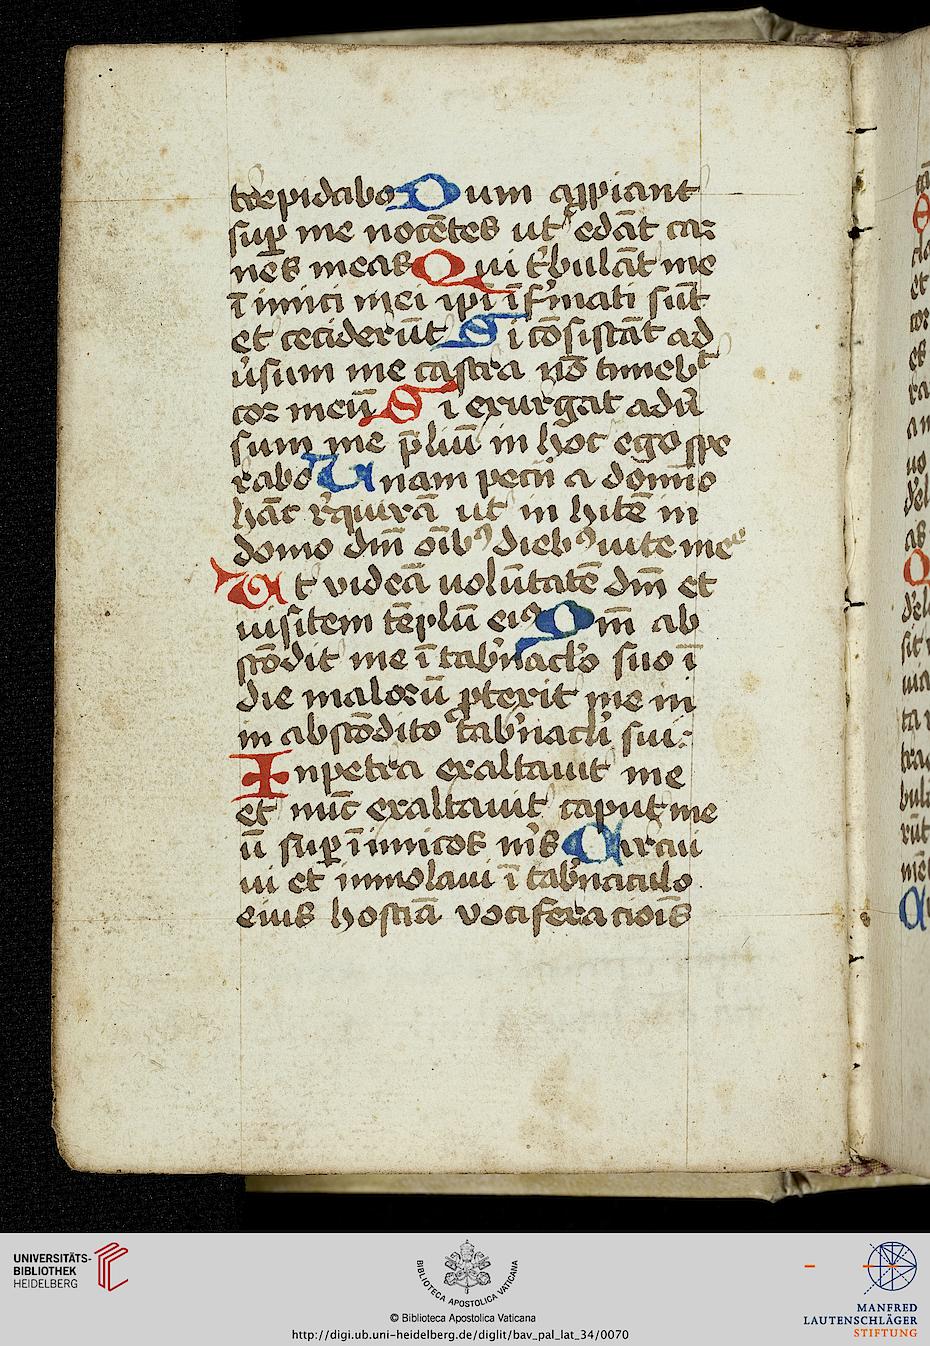 trepidabo Dum appiant
sup me nocētes ut edāt car
nes meas Qui t'bulāt me
īimici mei ipī īf'mati sūt
et ceciderūt Si cōsistāt ad
ūsum me castra nō timebt
cor meū Si exurgat adū
sum me p̄liū in hoc ego spe
rabo Unam pecii a domīo
hāc r'quirā ut in hitē in
domo dm̄ oīb9 dieb9 uite mee
Ut videā uolūtatē dm̄ et
uisitem tēplū ei9 Qm̄ ab
scōdit me ī tab'nac'lo suo ī
die malorū ptexit me in
in abscōdito tab'nac'li sui:
In petra exaltauit me
et nūc exaltauit caput me
ū sup īimicos m's Circui
ui et immolaui ī tab'naculo
eius hostiā vociferacioīs
UNIVERSITÄTS-
BIBLIOTHEK
HEIDELBERG
BIBLIOTECA APOSTOLICA VATICANA
© Biblioteca Apostolica Vaticana
http://digi.ub.uni-heidelberg.de/diglit/bav_pal_lat_34/0070
MANFRED
LAUTENSCHLÄGER
STIFTUNG